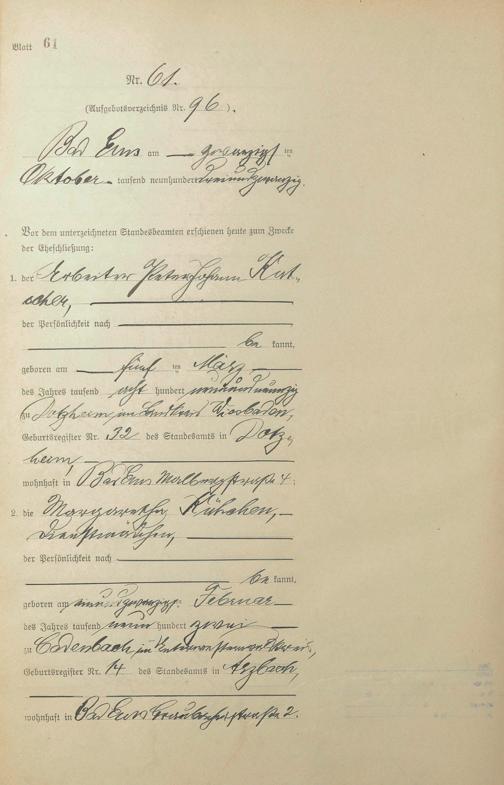 Blatt 61
Nr. 61.
(Aufgebotsverzeichnis Nr. 96).
Bad Ems am zwanzigsten
Oktober tausend neunhundert dreiundzwanzig.
Vor dem unterzeichneten Standesbeamten erschienen heute zum Zwecke
der Eheschließung:
1. der Arbeiter Peter Johann Kat-
scher,
der Persönlichkeit nach
be kannt,
geboren am fünf ten März
des Jahres tausend acht hundert neunundneunzig
zu Dotzheim, im Landkreis Wiesbaden,
Geburtsregister Nr. 32 des Standesamts in Dotz-
heim,
wohnhaft in Bad Ems Malbergstraße 4.
2. die Margaretha Kühchen,
Dienstmädchen,
der Persönlichkeit nach
be kannt,
geboren am Februar
des Jahres tausend neun hundert zwei
zu Cadenbach, im Unterwesterwaldkreis,
Geburtsregister Nr. 14 des Standesamts in Arzbach,
wohnhaft in Bad Ems Braubacherstraße 2.